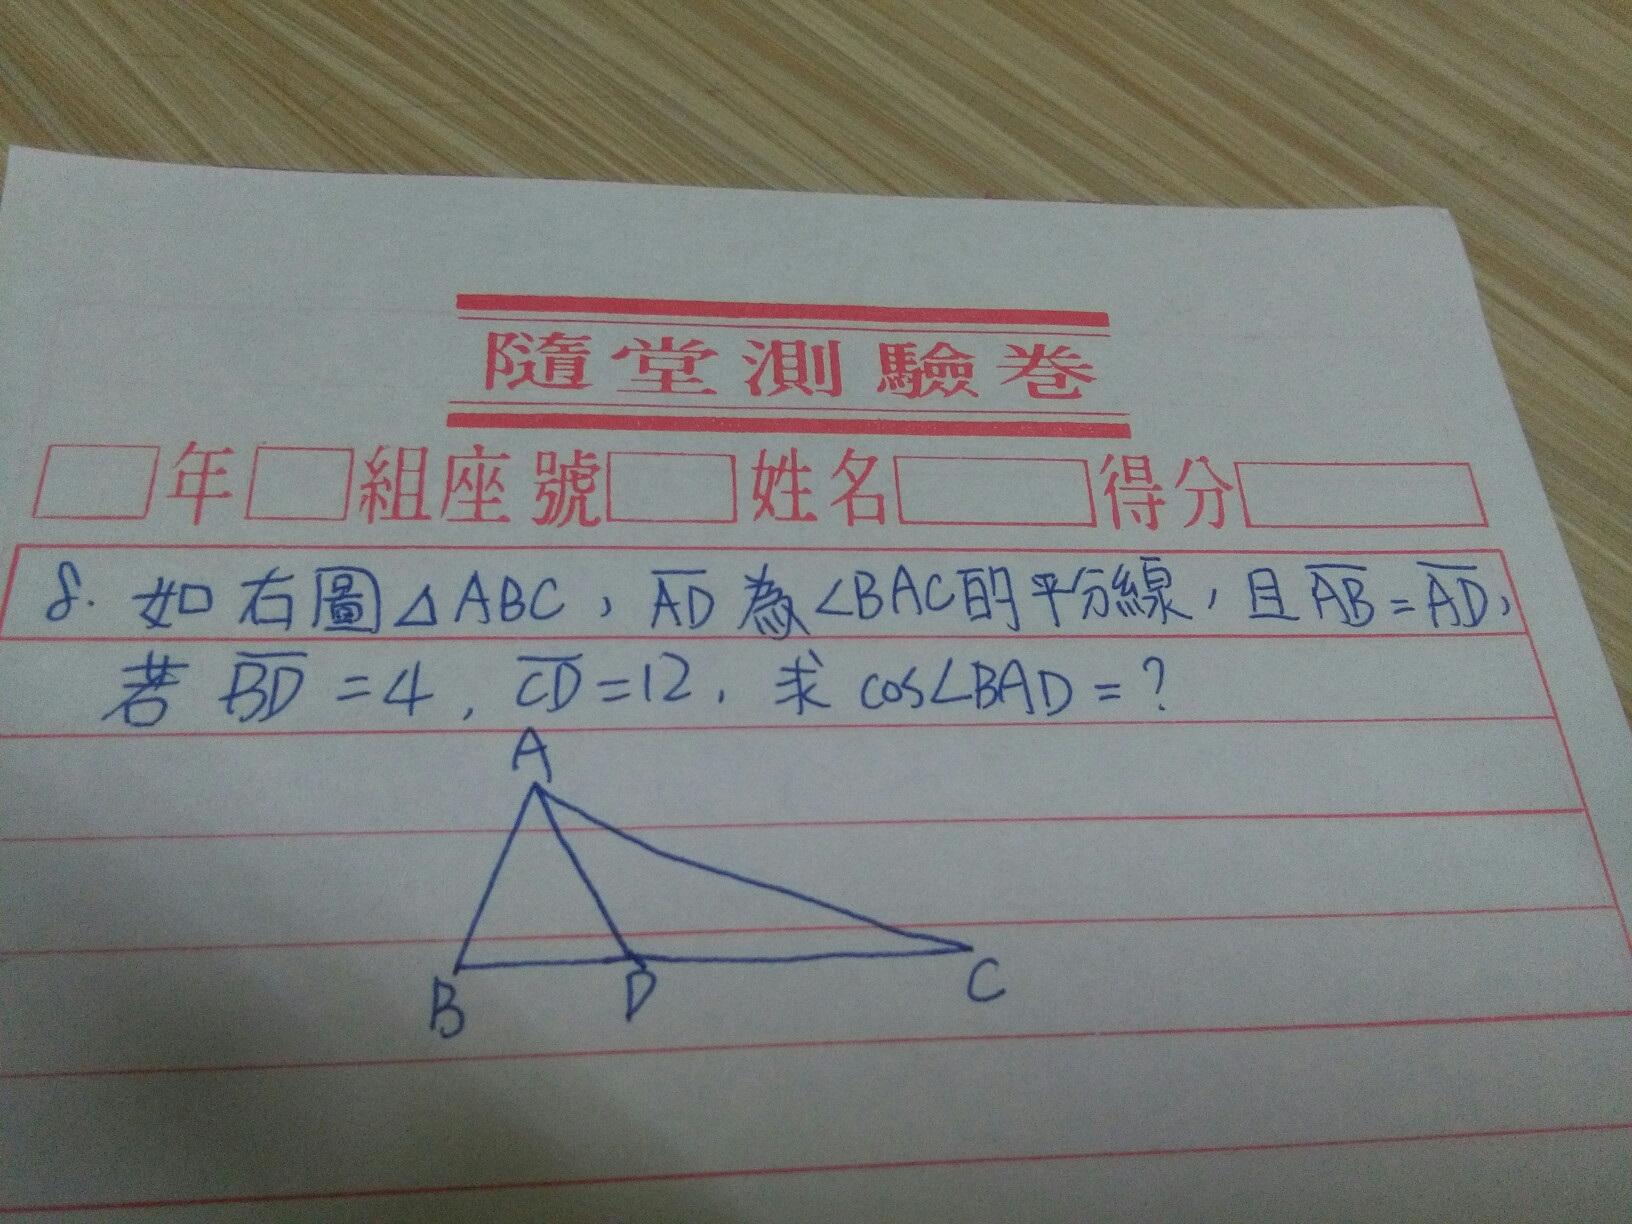 隨堂測驗卷
年 組座號 姓名 得分
8. 如右圖△ABC，A̅D̅為∠BAC的平分線，且A̅B̅=A̅D̅，
若 B̅D̅=4，C̅D̅=12，求 cos∠BAD=？
A
B D C